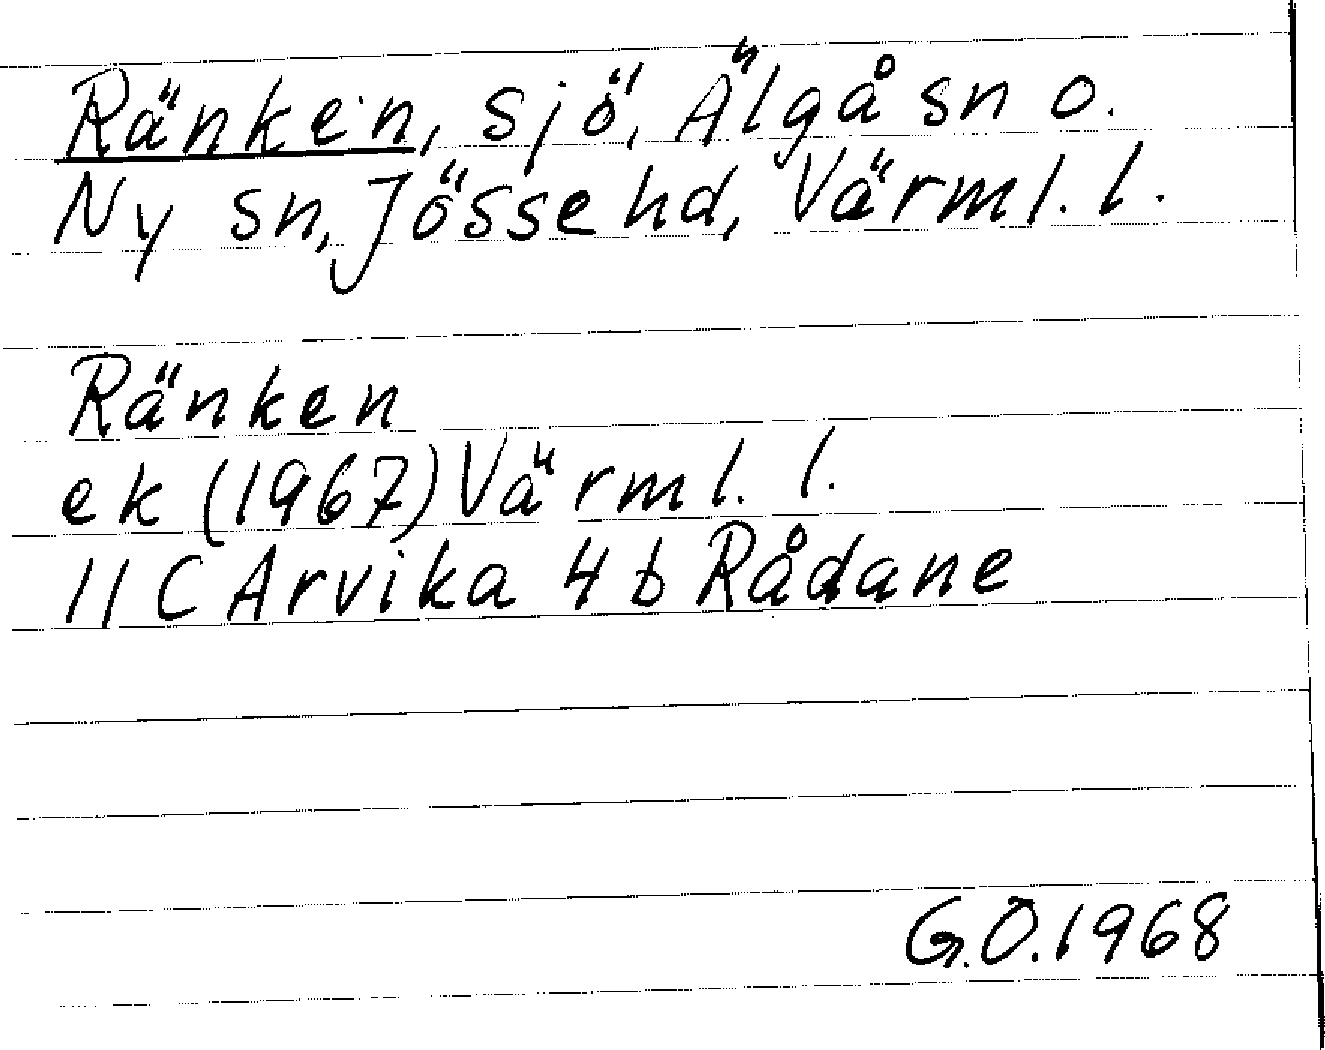 Ränken, sjö, Älgå sn o.
Ny sn, Jösse hd, Värml. l.
Ränken
ek (1967) Värml. l.
11 C Arvika 4 b Rådane
G.O. 1968